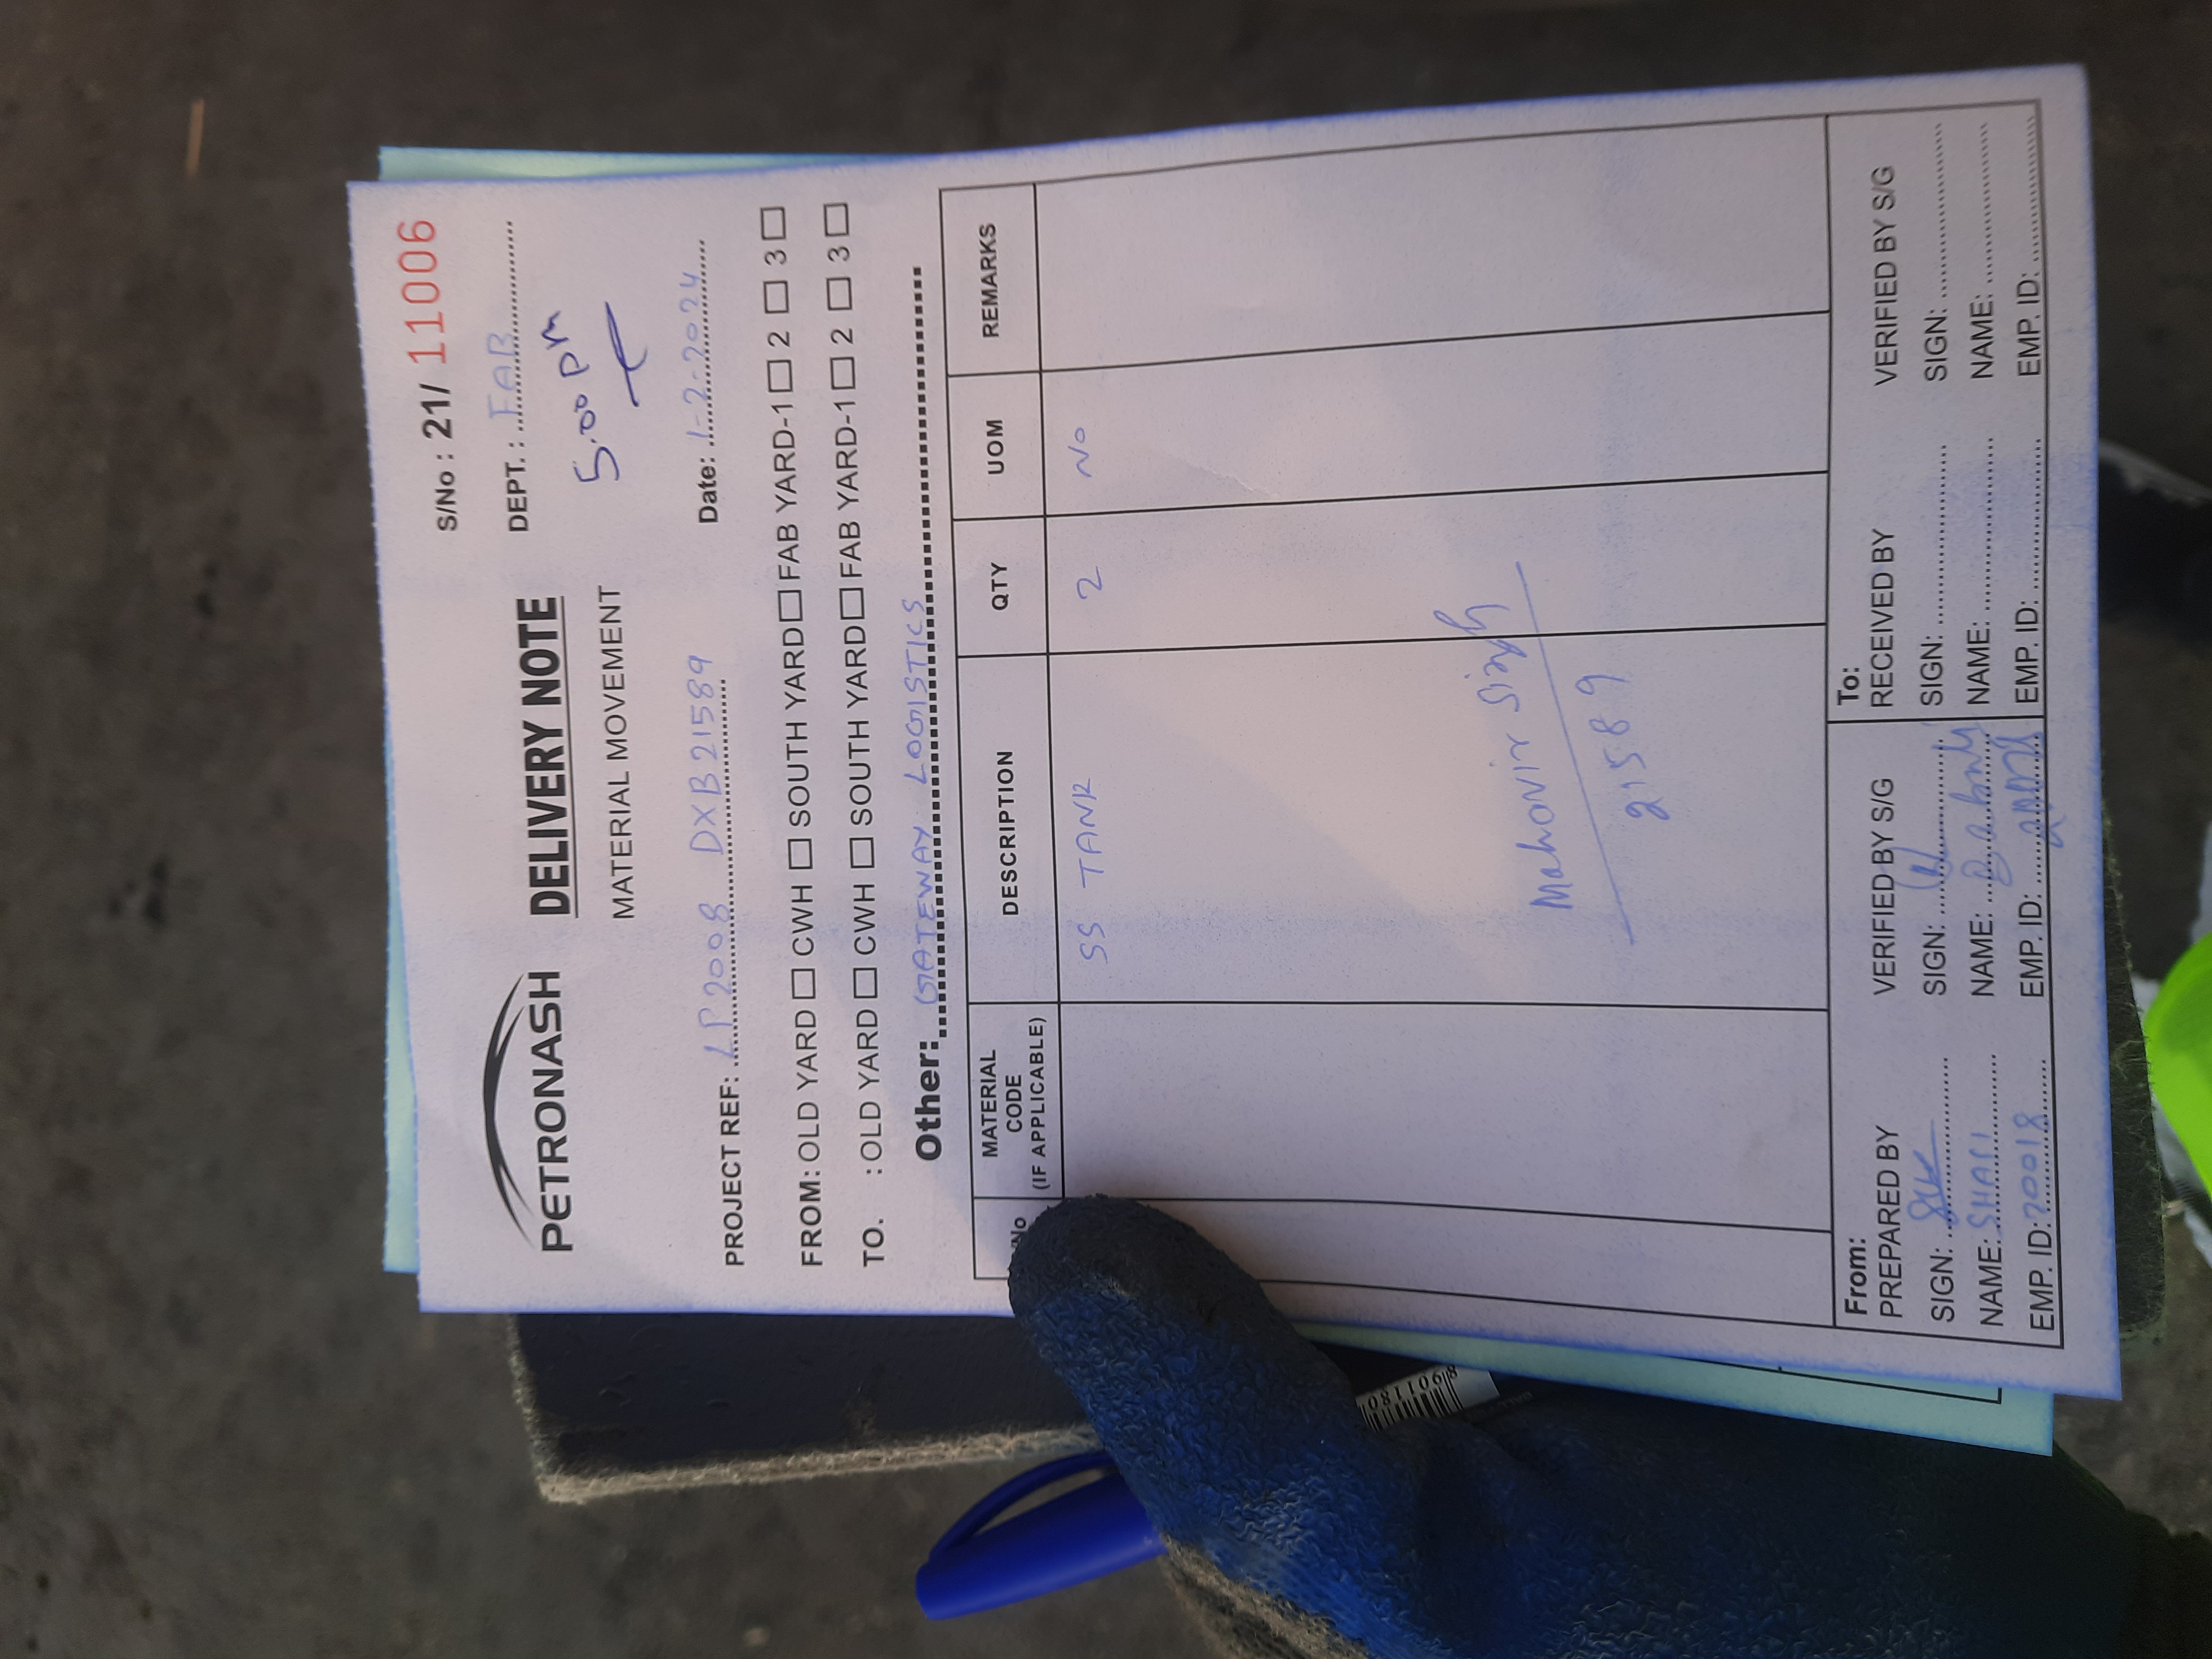 S/No : 21/ 11006
PETRONASH
DELIVERY NOTE
MATERIAL MOVEMENT
DEPT. : FAB
5.00 pm
PROJECT REF: LP2008 DXB21589
Date: 1-2-2024
FROM: OLD YARD CWH SOUTH YARD FAB YARD-1 2 3
TO. : OLD YARD CWH SOUTH YARD FAB YARD-1 2 3
Other: GATEWAY LOGISTICS
No MATERIAL CODE (IF APPLICABLE) DESCRIPTION QTY UOM REMARKS
SS TANK 2 No
Mahavir Singh
21589
From: To:
PREPARED BY VERIFIED BY S/G RECEIVED BY VERIFIED BY S/G
SIGN: SIGN: SIGN: SIGN:
NAME: NAME: NAME: NAME:
EMP. ID: 20018 EMP. ID: EMP. ID: EMP. ID: